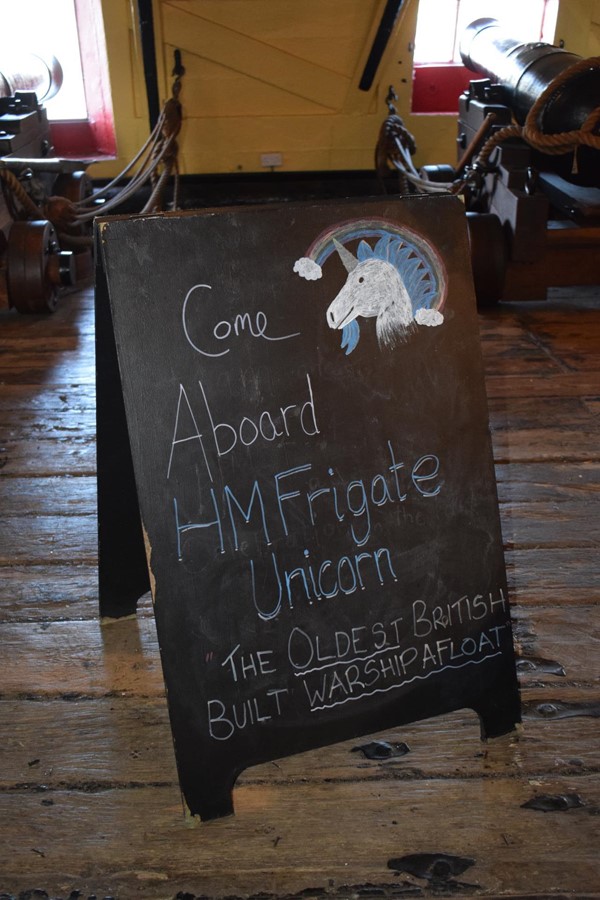 Come
Aboard
HM Frigate
Unicorn
"THE OLDEST BRITISH
BUILT WARSHIP AFLOAT"